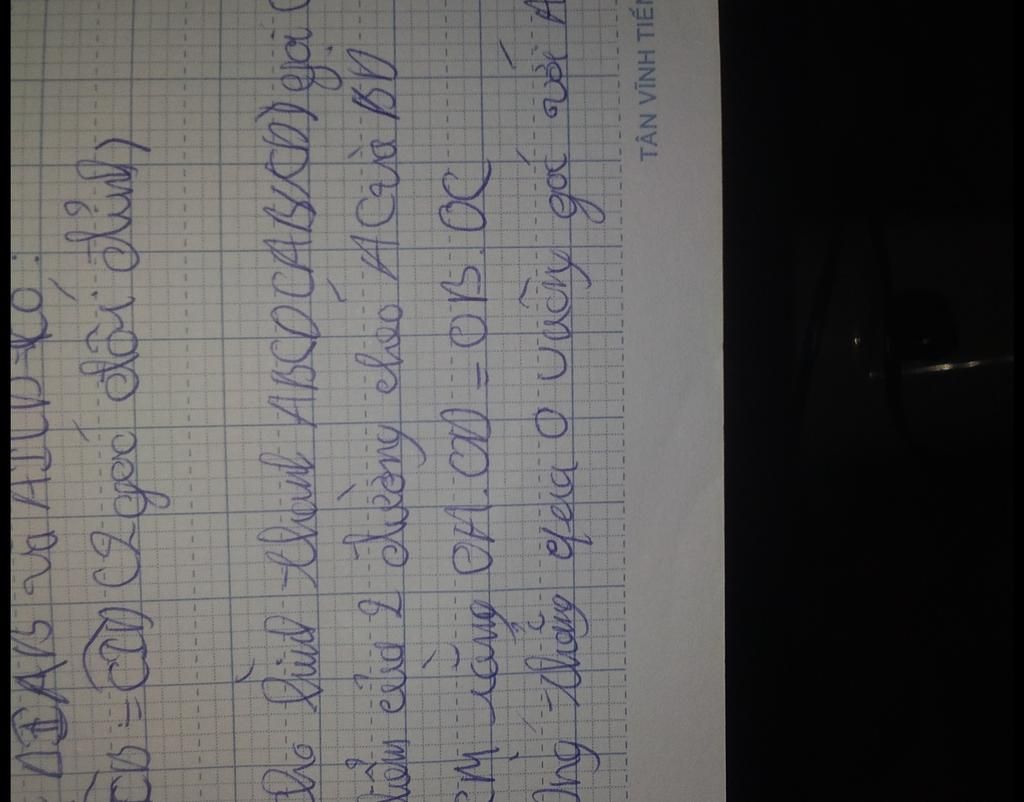 ΔIAB và ΔICD có:
= CID (2 góc đối đỉnh)
hình thang ABCD (AB//CD) gọi O
điểm của 2 đường chéo AC và BD
CM rằng OA.OD = OB.OC
thẳng qua O vuông góc với A
TÂN VĨNH TIẾN